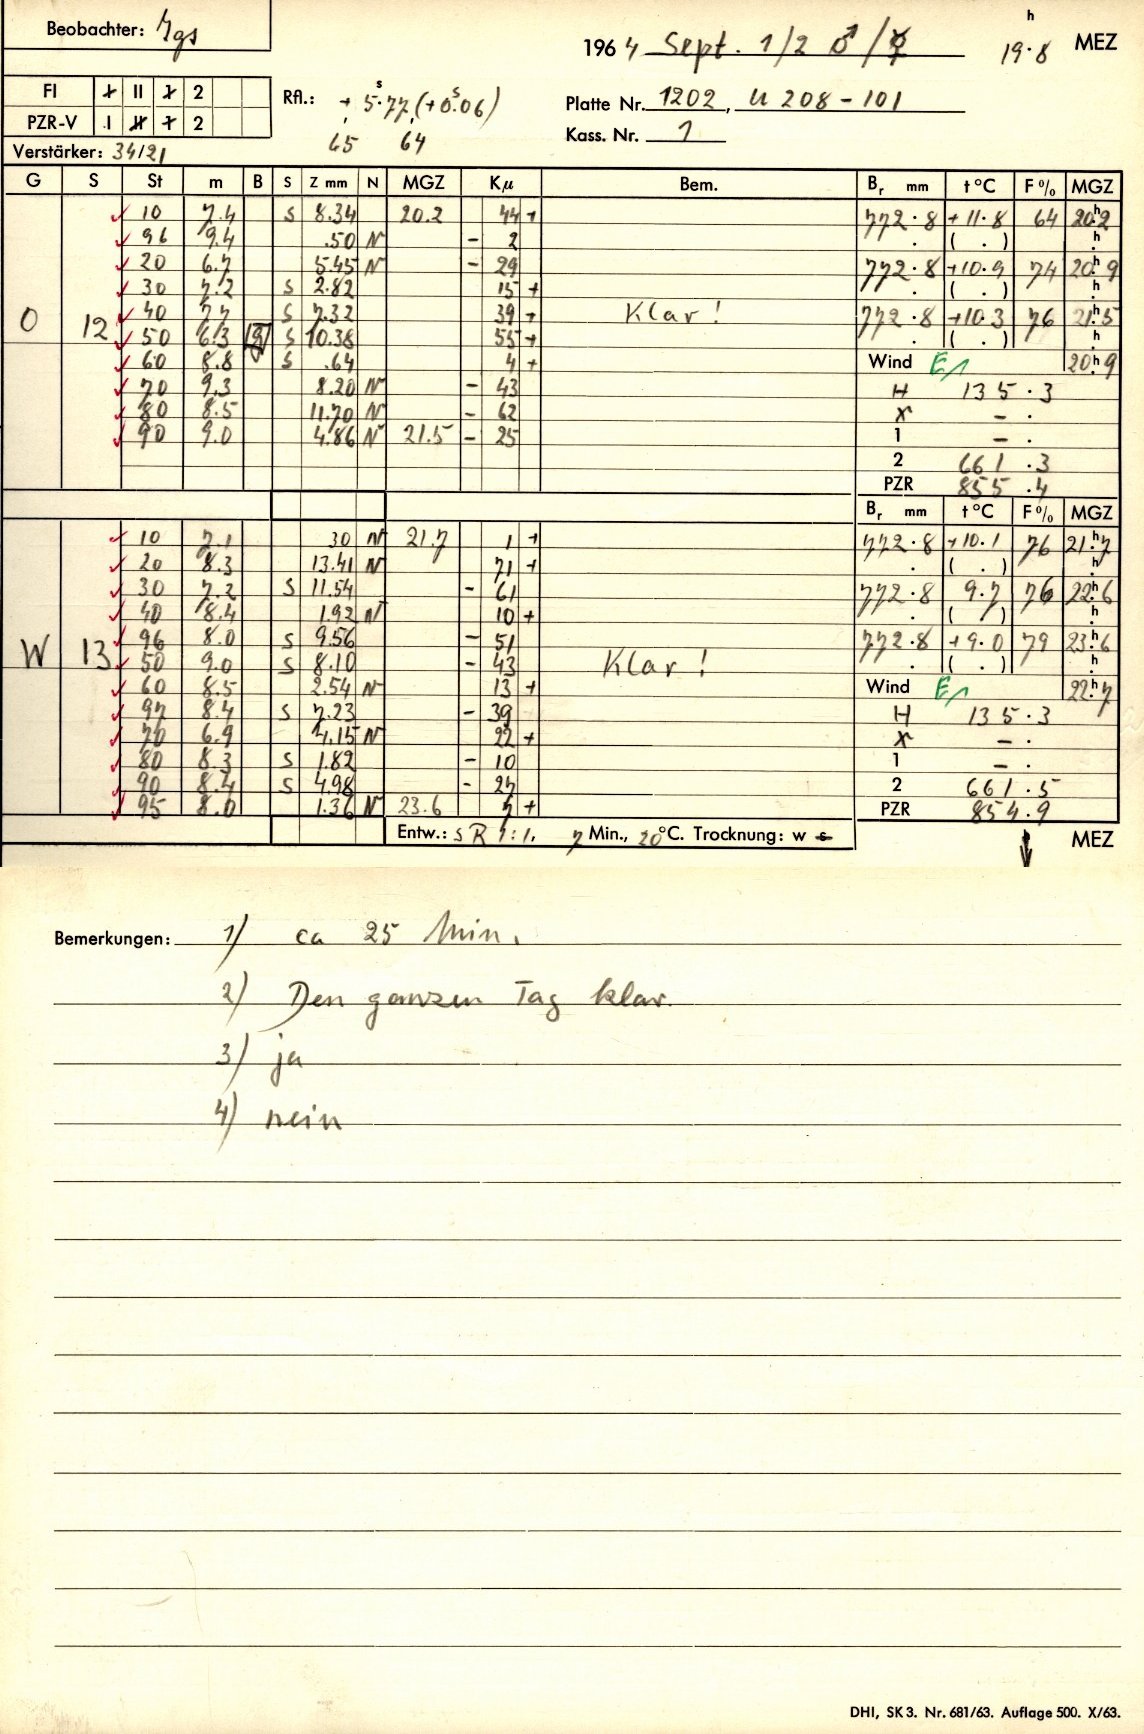 Beobachter: Igs
1964 Sept. 1/2 ♂/☿ 19h.8 MEZ
FI I II 1 2
PZR-V I II 1 2
Rfl.: + 5s.77 (+0s.06)
65 64
Platte Nr. 1202, U 208-101
Kass. Nr. 1
Verstärker: 34/21
G S St m B S Z mm N MGZ Kμ Bem. Br mm t°C F% MGZ
10 7.4 S 8.34 20.2 44 + 772.8 +11.8 64 20h.2
96 9.4 .50 N - 2 . ( . ) h.
20 6.7 5.45 N - 29 772.8 +10.9 74 20h.9
30 7.2 S 2.82 15 + . ( . ) h.
O 12 40 7.7 S 7.32 39 + Klar! 772.8 +10.3 76 21h.5
50 6.3 S 10.38 55 + . ( . ) h.
60 8.8 S .64 4 + Wind E1 20h.9
70 9.3 8.20 N - 43 H 135.3
80 8.5 11.70 N - 62 X - .
90 9.0 4.86 N 21.5 - 25 1 - .
2 661.3
PZR 855.4
Br mm t°C F% MGZ
10 7.1 30 N 21.7 1 + 772.8 +10.1 76 21h.7
20 8.3 13.41 N 71 + . ( . ) h.
30 7.2 S 11.54 - 61 772.8 9.7 76 22h.6
40 8.4 1.92 N 10 + . ( ) h.
96 8.0 S 9.56 - 51 772.8 +9.0 79 23h.6
W 13 50 9.0 S 8.10 - 43 Klar! . ( . ) h.
60 8.5 2.54 N 13 + Wind E1 22h.7
97 8.4 S 7.23 - 39 H 135.3
70 6.9 4.15 N 22 + X - .
80 8.3 S 1.82 - 10 1 - .
90 8.4 S 4.98 - 27 2 661.5
95 8.0 1.36 N 23.6 7 + PZR 854.9
Entw.: s R 1:1, 7 Min., 20°C. Trocknung: w s MEZ
Bemerkungen: 1) ca 25 Min.
2) Den ganzen Tag klar.
3) ja
4) nein
DHI, SK 3. Nr. 681/63. Auflage 500. X/63.